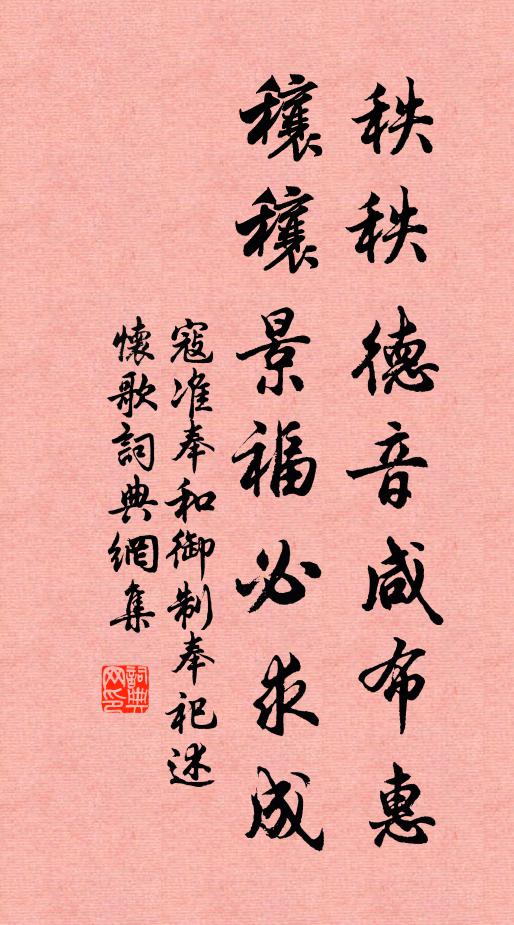 秩秩德音咸布惠
穰穰景福必求成
寇准奉和御制奉祀述
懷歌詞典網集
詞典網印